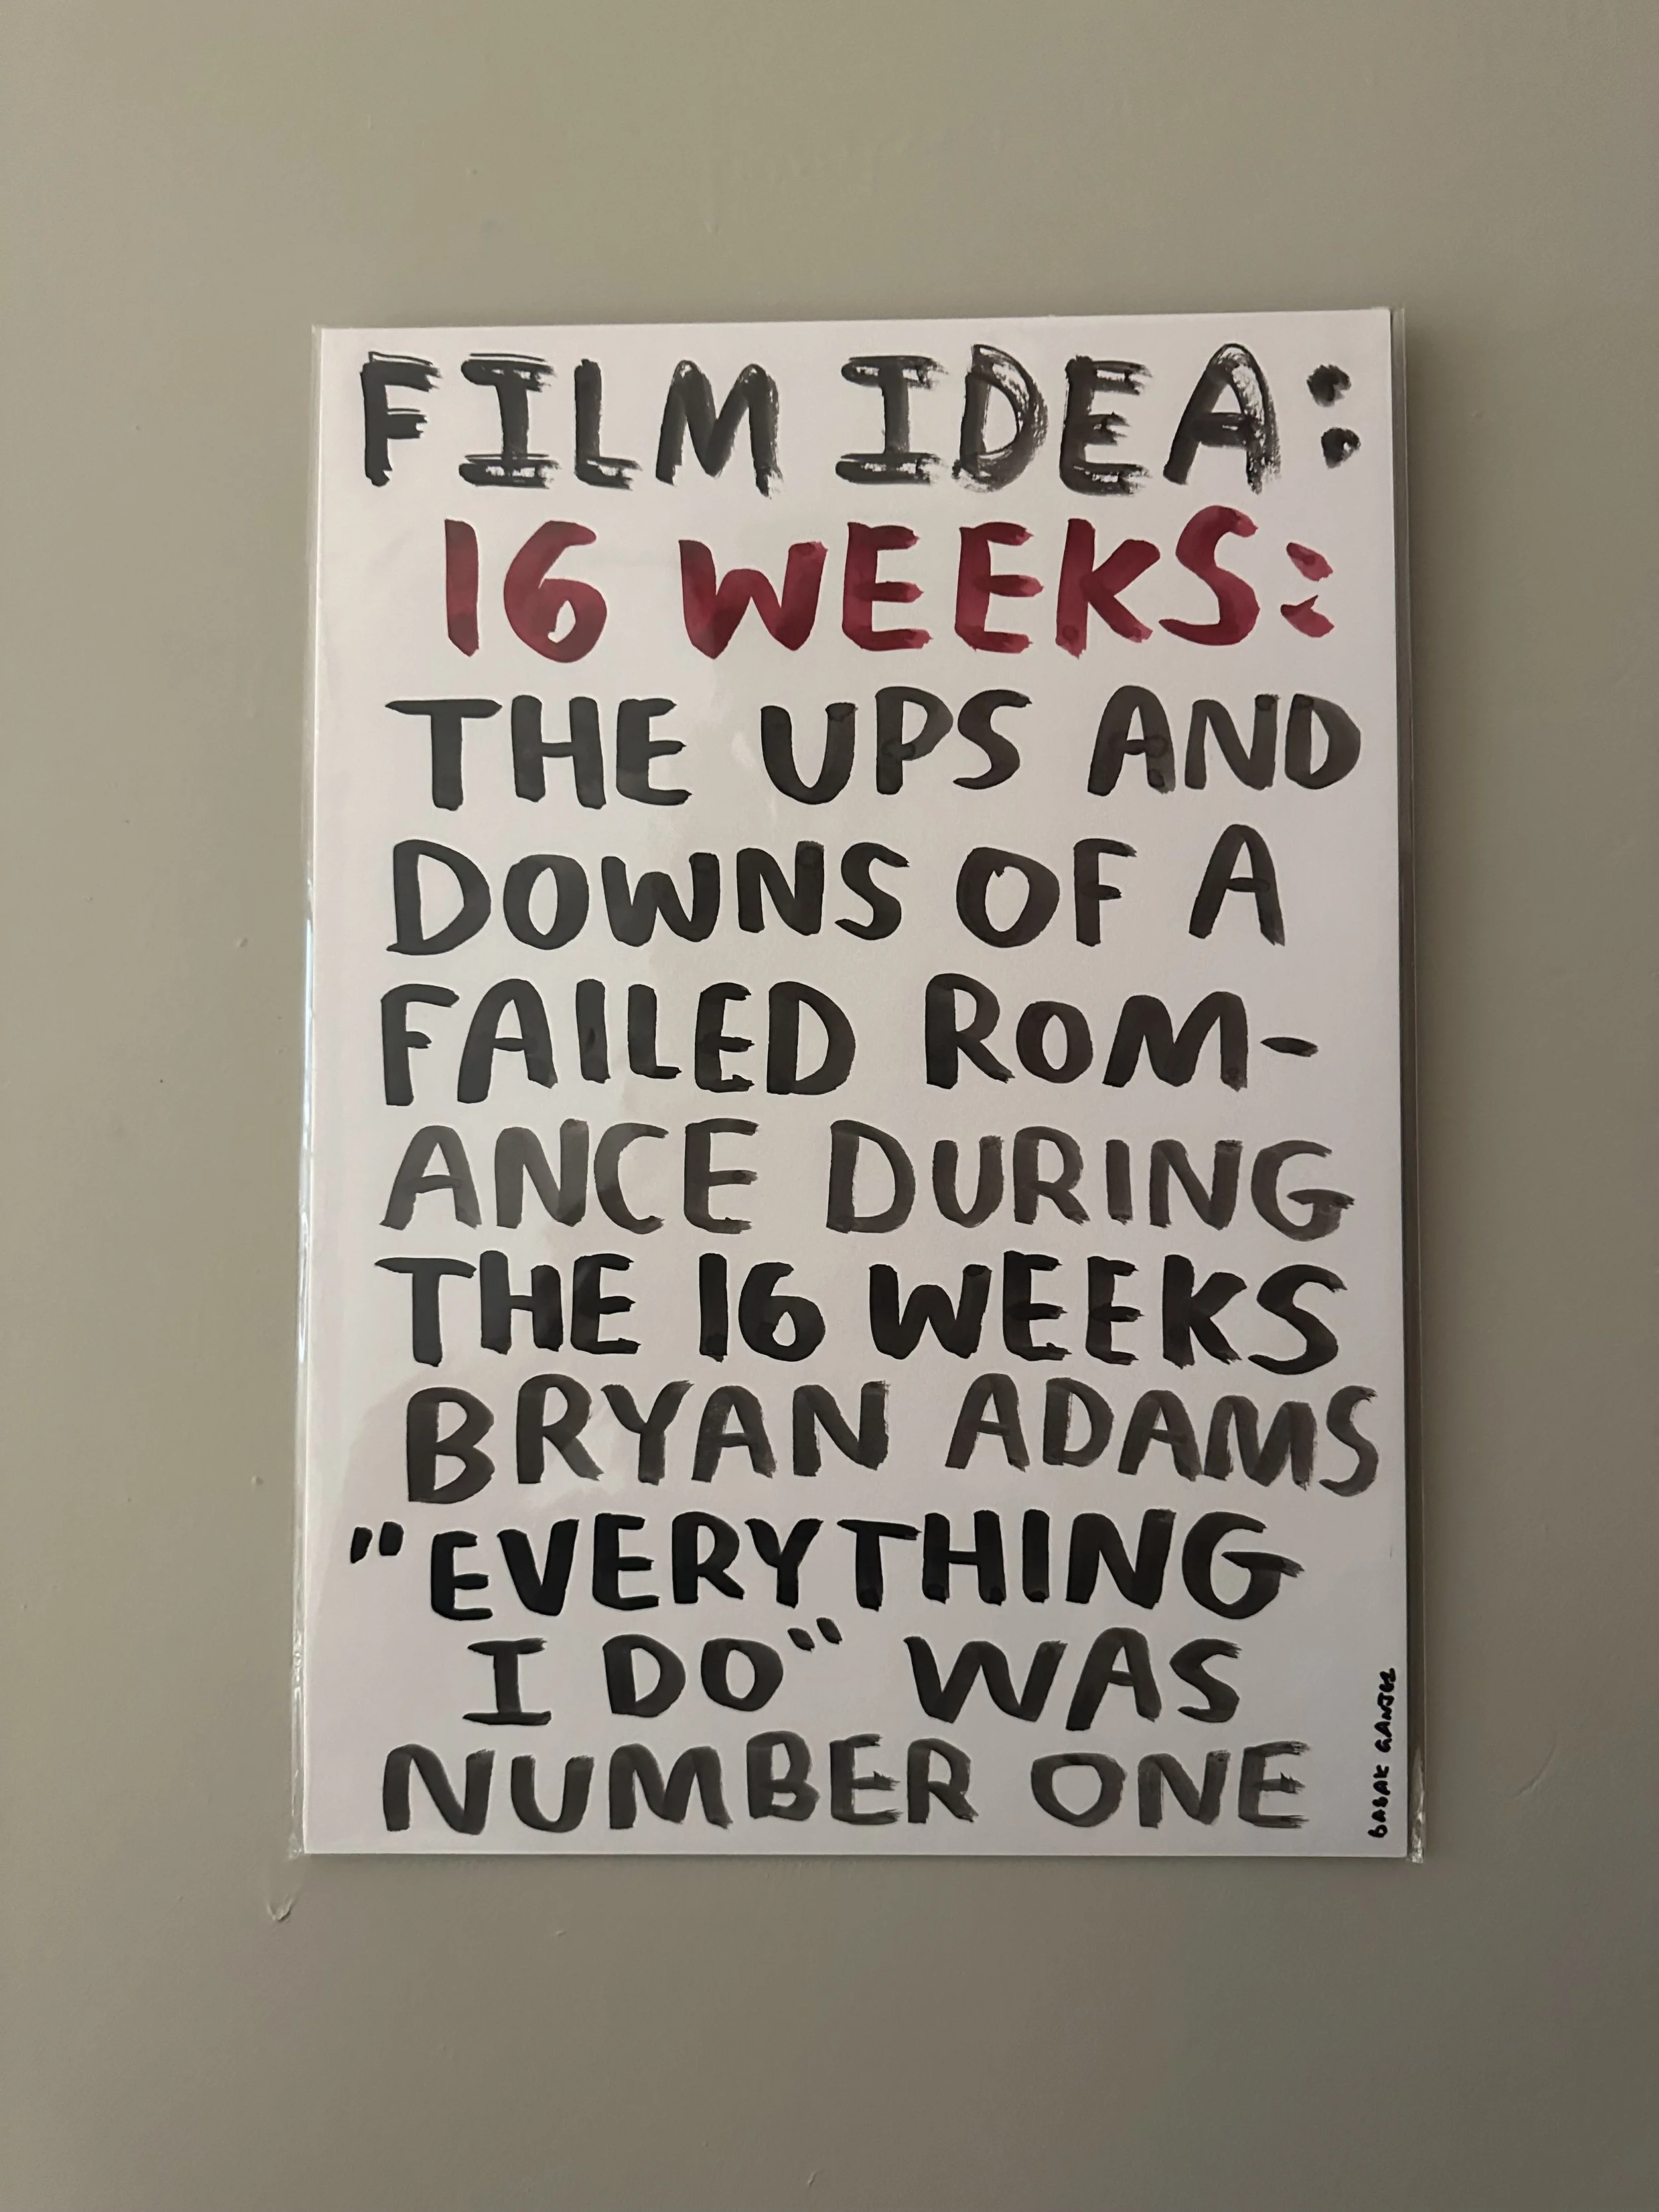 FILM IDEA:
16 WEEKS:
THE UPS AND
DOWNS OF A
FAILED ROM-
ANCE DURING
THE 16 WEEKS
BRYAN ADAMS
"EVERYTHING
I DO" WAS
NUMBER ONE
BABAK GANJEI